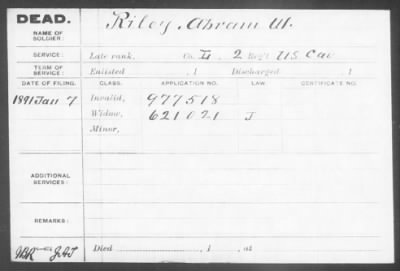 DEAD.
NAME OF SOLDIER: Riley, Abram W.
SERVICE: Late rank, Co. L, 2 Reg't U.S. Cav
TERM OF SERVICE: Enlisted , 1 Discharged , 1
DATE OF FILING. CLASS. APPLICATION NO. LAW. CERTIFICATE NO.
1891 Jan 7 Invalid, 977518
Widow, 621021 J
Minor,
ADDITIONAL SERVICES:
REMARKS:
Died , 1 , at